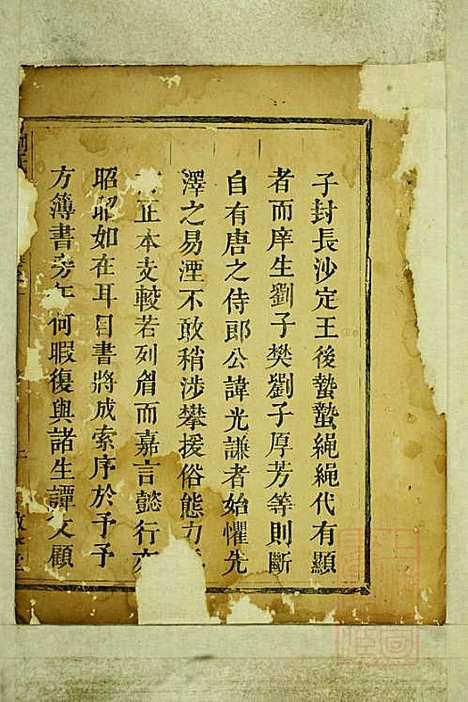 子封長沙定王後蟄蟄繩繩代有顯
者而庠生劉子樊劉子厚芳等則斷
自有唐之侍郎公諱光謙者始懼先
澤之易湮不敢稍涉攀援俗態力
正本支較若列眉而嘉言懿行亦
昭昭如在耳目書將成索序於予予
方簿書旁午何暇復與諸生譚文顧